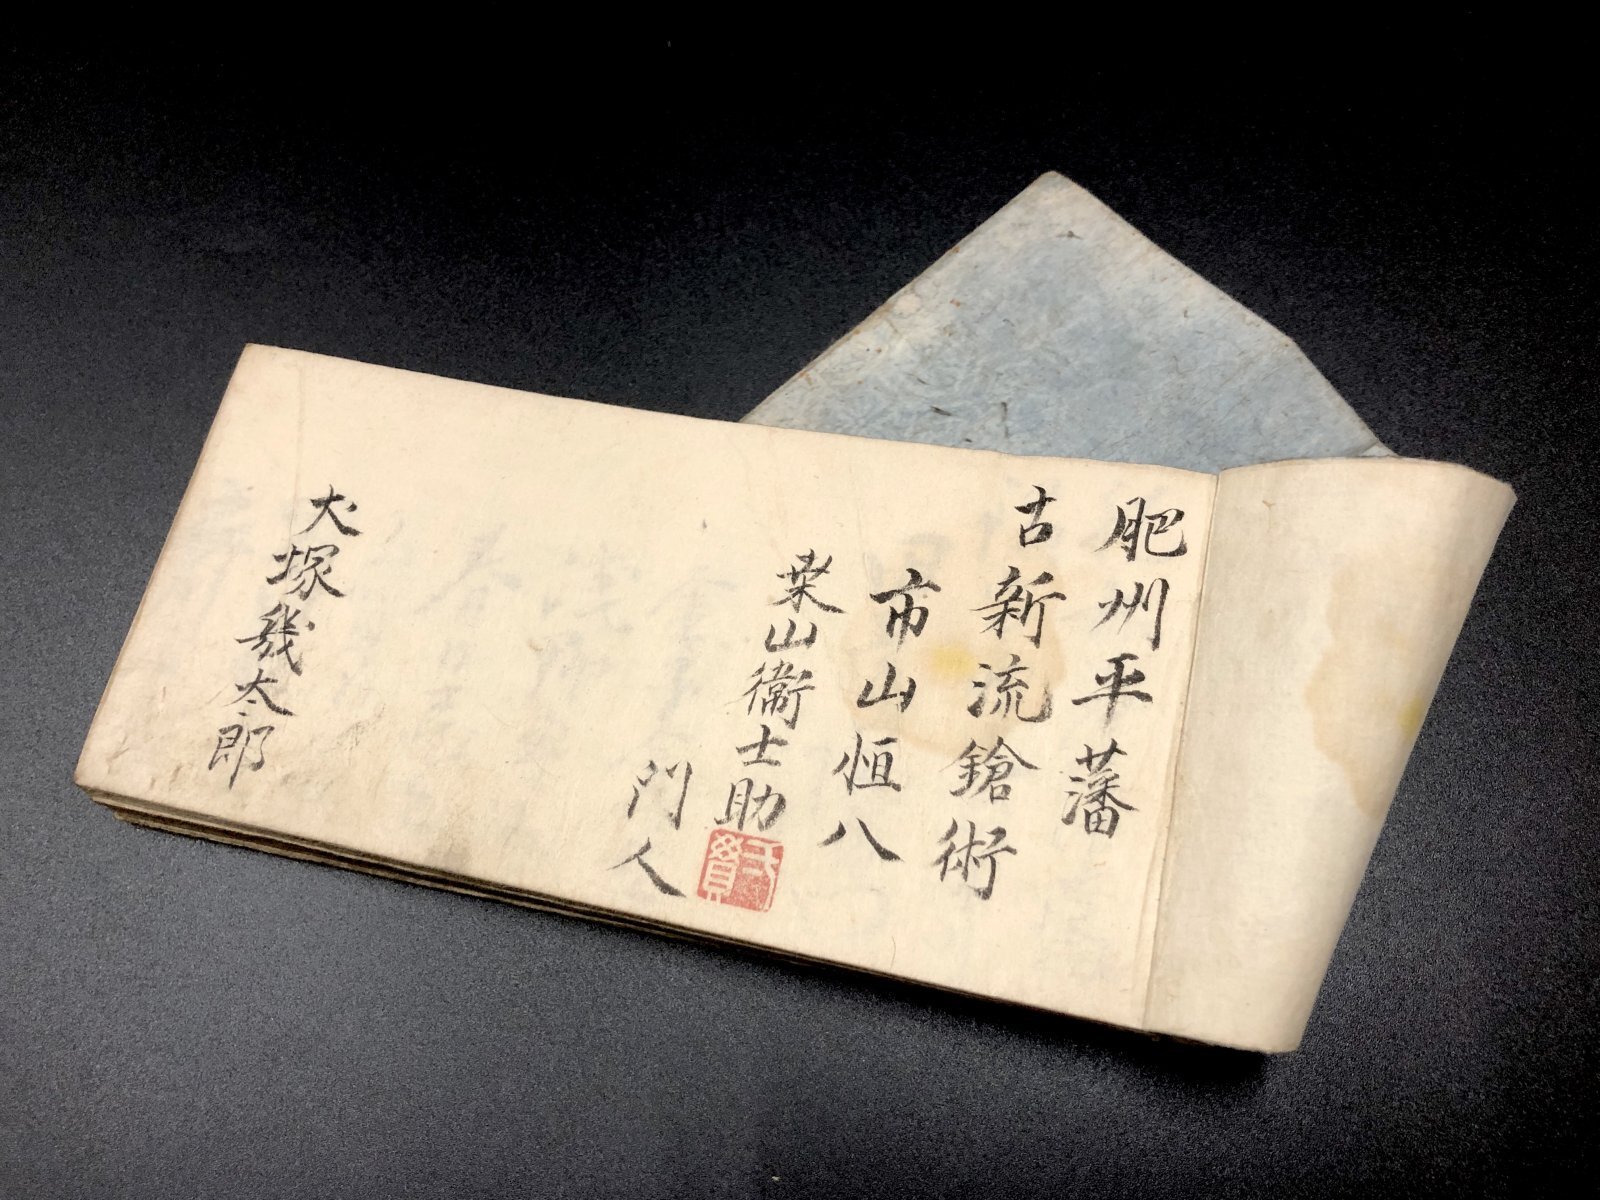 肥州平藩
古新流鎗術
市山恒八
桒山衞士助
門人
犬塚幾太郎